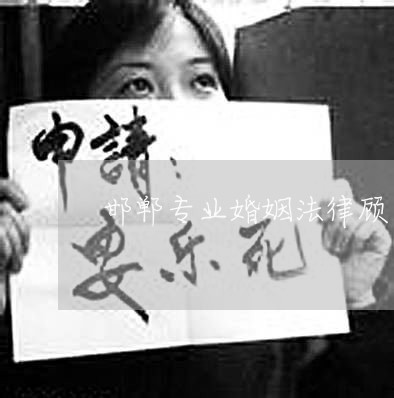 申請：
邯郸专业婚姻法律顾
安乐死